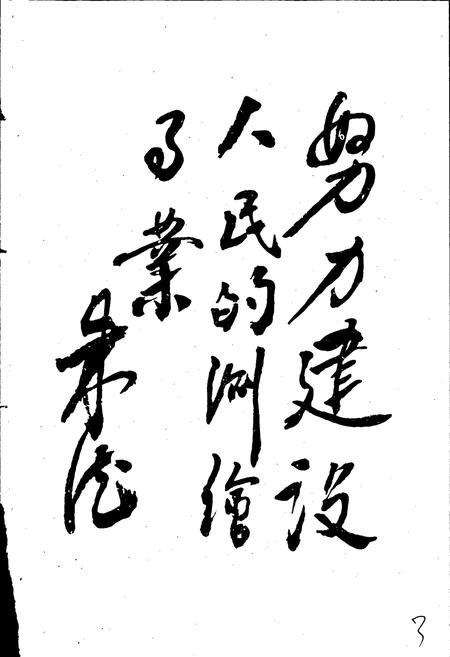 努力建设
人民的测繪
事業
朱德
3